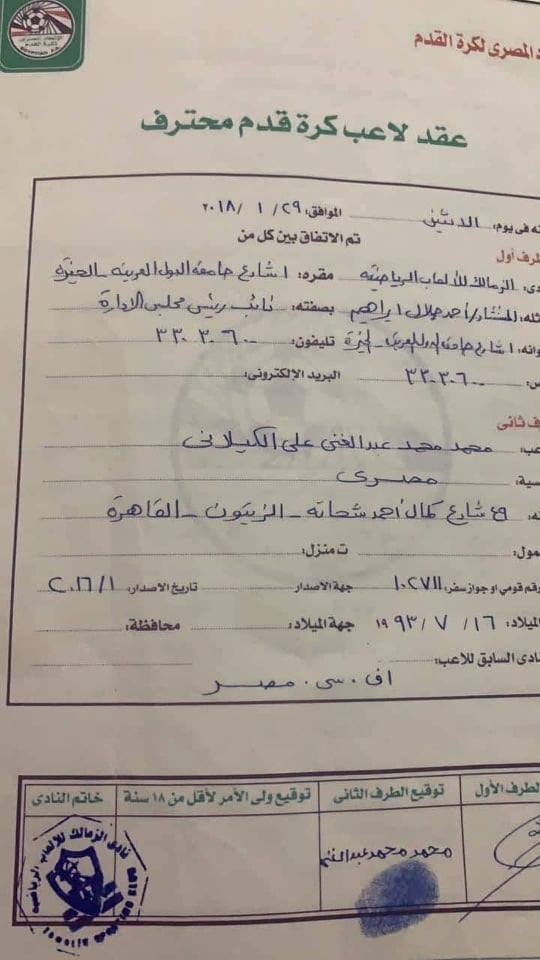 الاتحاد المصري
لكرة القدم
د المصرى لكرة القدم
عقد لاعب كرة قدم محترف
نه فى يوم: الاثنين الموافق: ٢٩ / ١ / ٢٠١٨
تم الاتفاق بين كل من
طرف أول
دى: الزمالك للألعاب الرياضية مقره: ١ شارع جامعة الدول العربية - الجيزة
ثله: المستشار/ أحمد جلال ابراهيم بصفته: نائب رئيس مجلس الادارة
وانه: ١ شارع جامعة الدول العربية - الجيزة تليفون: ٣٣٠٣٦٠٠
س: ٣٣٠٣٦٠٠ البريد الإلكترونى:
ف ثانى
عب: محمد محمد عبد الغنى على الكيلانى
سية: مصرى
نه: ٤٩ شارع كمال أحمد شحاته - الزيتون - القاهرة
مول: ت منزل:
رقم قومي او جواز سفر: ١٠٢٧١١ جهة الاصدار تاريخ الاصدار: ٢٠١٦/١
الميلاد: ١٦ / ٧ / ١٩٩٣ جهة الميلاد: محافظة:
نادى السابق للاعب:
اف . سى . مصر
لطرف الأول توقيع الطرف الثانى توقيع ولى الأمر لأقل من ١٨ سنة خاتم النادى
محمد محمد عبدالغنى
نادى الزمالك للألعاب الرياضية